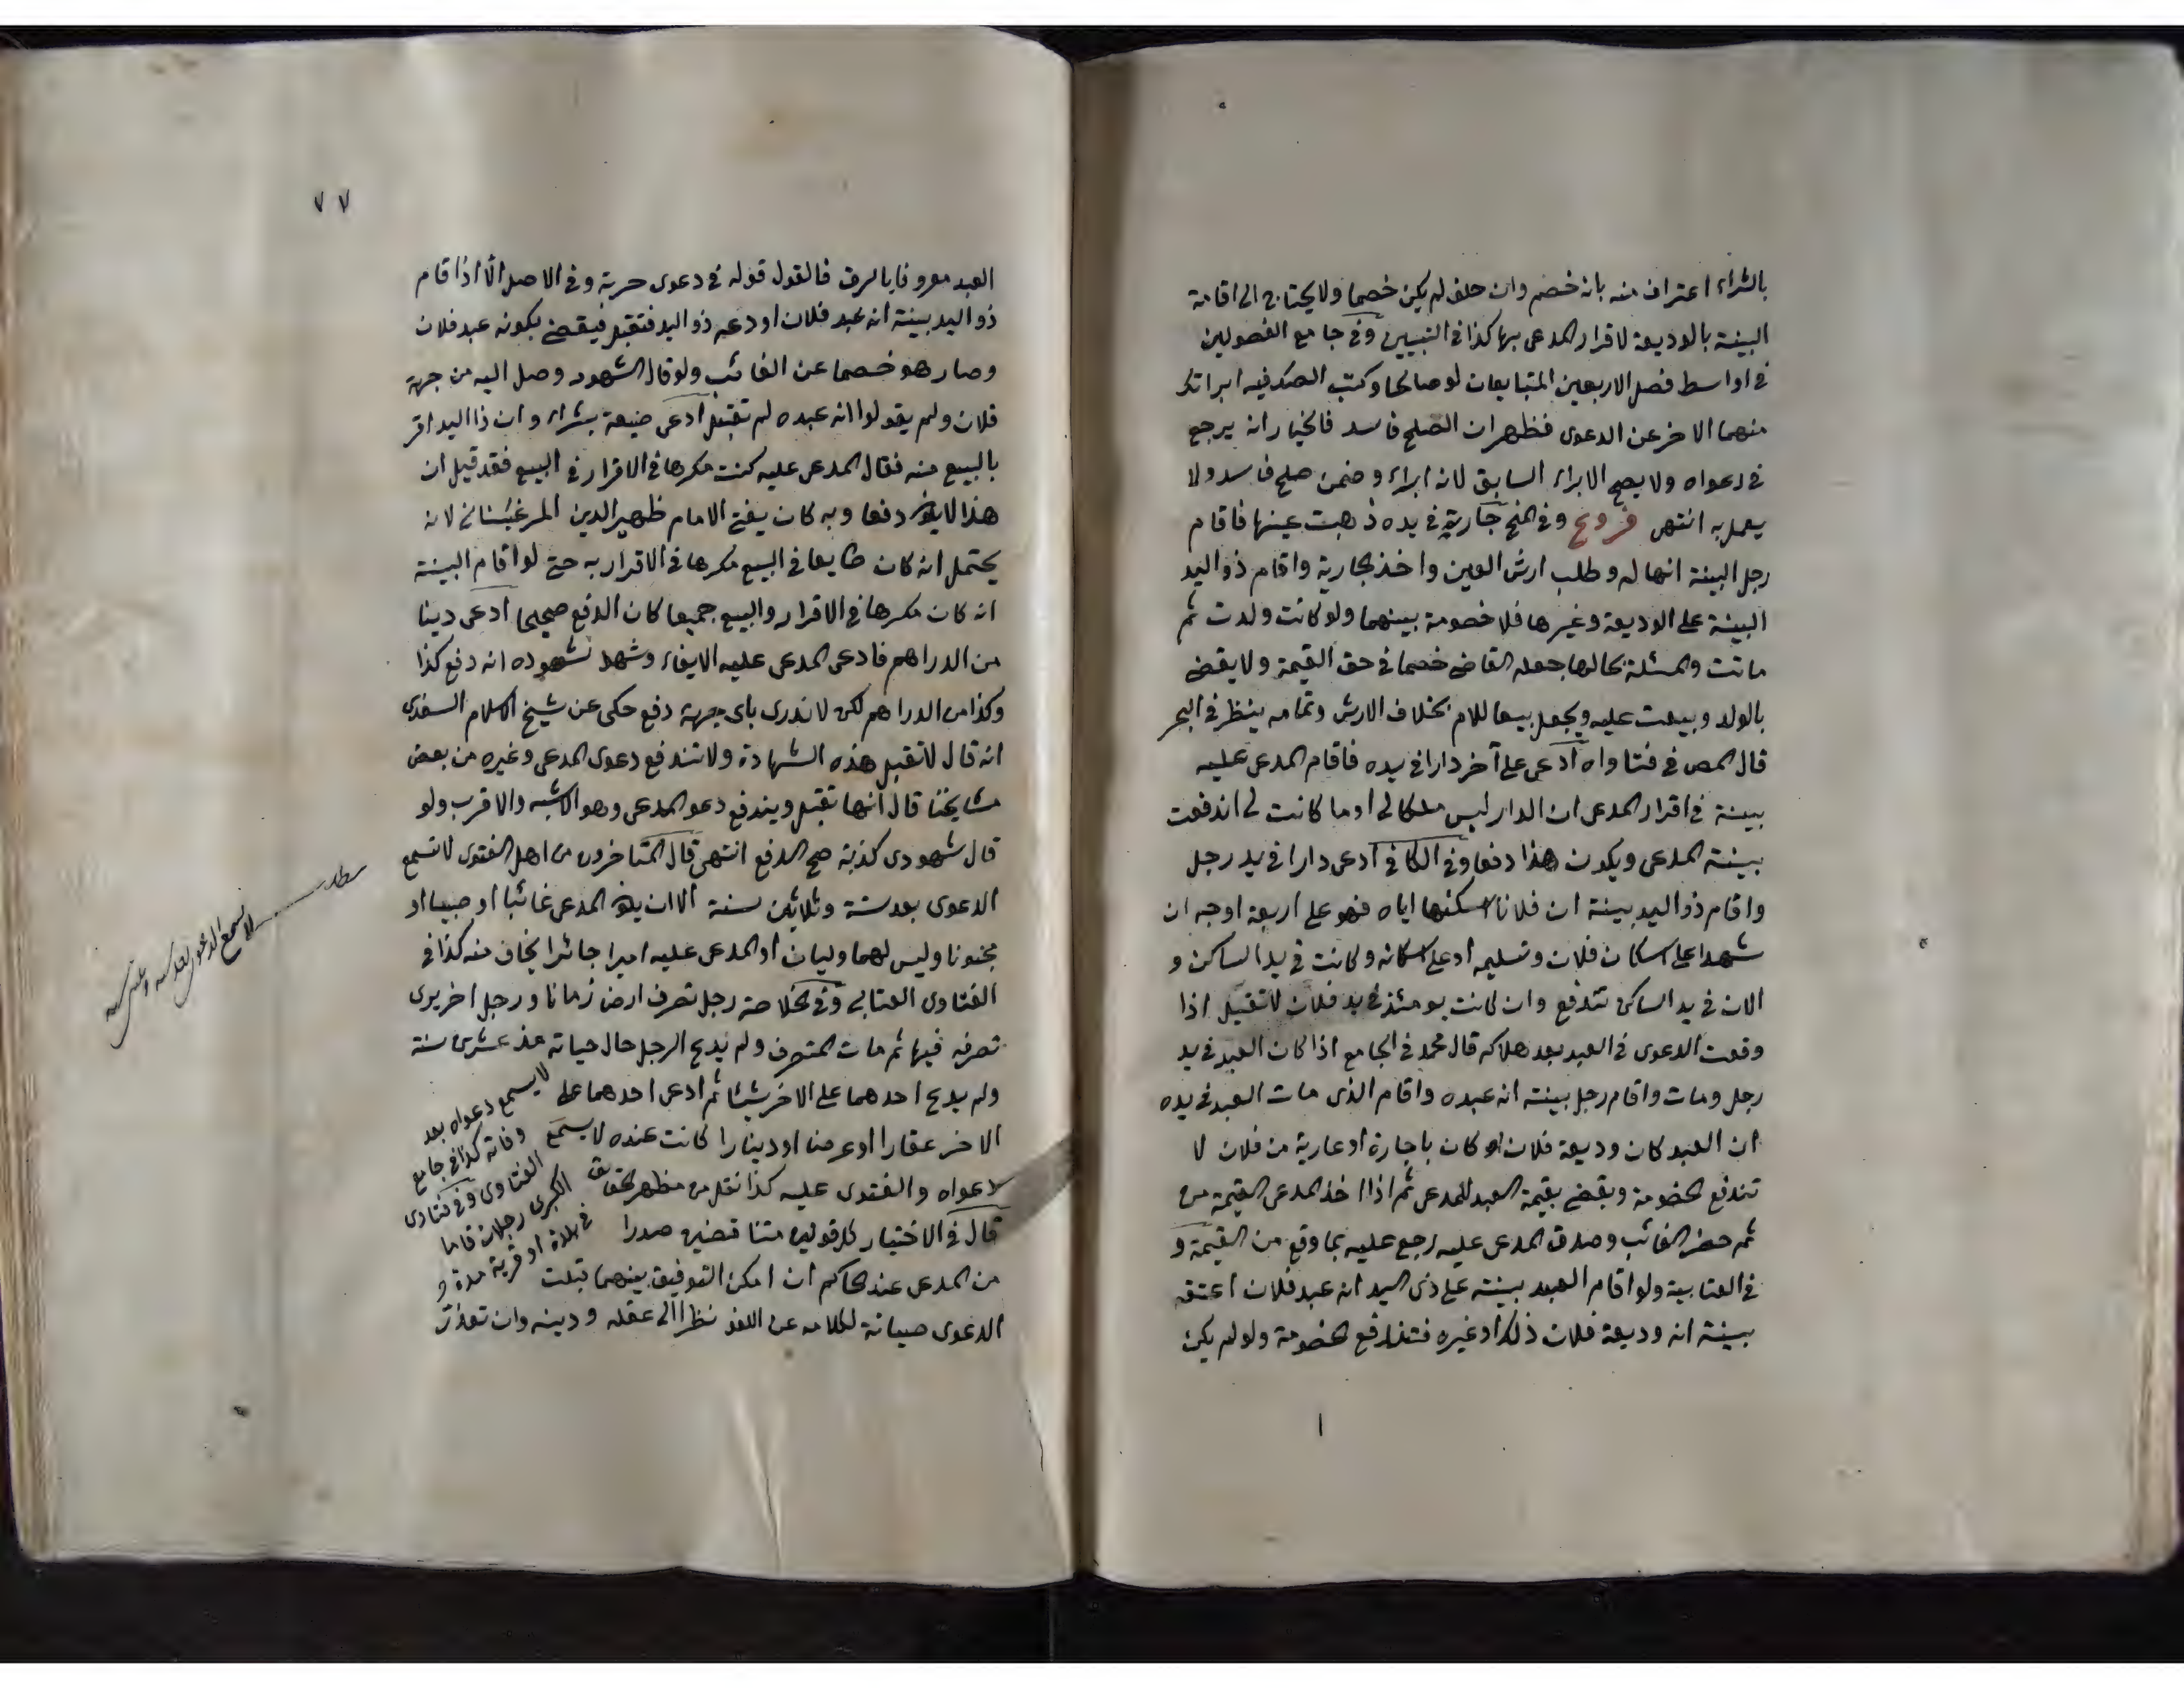 بالشراء اعتراف منه بانه خصم وان حلف لم يكن خصما ولا يحتاج الى اقامة
البينة بالوديعة لاقرار المدعى بها كذا فى التبيين وفى جامع الفصولين
فى اواسط فصل الاربعين المتبايعان لو صالحا وكتب الصك فيه ابرا كل
منهما الاخر عن الدعوى فظهر ان الصلح فاسد فالخيار انه يرجع
فى دعواه ولا يصح الابراء السابق لانه ابراء و ضمن صلح فاسد ولا
يعمل به انتهى فروع وفى المنح جارية فى يده ذهبت عينها فاقام
رجل البينة انها له وطلب ارش العين واخذ الجارية واقام ذو اليد
البينة على الوديعة وغيرها فلا خصومة بينهما ولو كانت ولدت ثم
ماتت والمسئلة بحالها جعله القاضى خصما فى حق القيمة ولا يقضى
بالولد و عليه ويجعل للام بخلاف الارش وتمامه ينظر فى البحر
قال المص فى فتاواه ادعى على آخر دارا فى يده فاقام المدعى عليه
بينة فى اقرار المدعى ان الدار ليس ملكا لى او ما كانت لى اندفعت
بينة المدعى ويكون هذا دفعا وفى الكافى ادعى دارا فى يد رجل
واقام ذو اليد بينة ان فلانا اسكنها اياه فهو على اربعة اوجه ان
شهدا على اسكان فلان وتسليمه او على اسكانه وكانت فى يد الساكن و
الان فى يد الساكن تندفع وان كانت يومئذ فى يد فلان لا تقبل اذا
وقعت الدعوى فى العبد بعد هلاكه قال محمد فى الجامع اذا كان العبد فى يد
رجل ومات واقام رجل بينة انه عبده واقام الذى مات العبد فى يده
ان العبد كان وديعة فلان او كان باجارة او عارية من فلان لا
تندفع الخصومة ويقضى بقيمة العبد للمدعى ثم اذا اخذ المدعى القيمة من
ثم حضر الغائب وصدق المدعى عليه رجع عليه بما وقع من القيمة و
فى العتابية ولو اقام العبد بينة على ذى اليد انه عبد فلان اعتقه
بينة انه وديعة فلان ذلك او غيره فتندفع الخصومة ولو لم يكن
٧٧
العبد معروفا بالرق فالقول قوله فى دعوى حرية وفى الاصل الا اذا اقام
ذو اليد بينة انه عبد فلان اودعه ذو اليد فتقبل فيقضى بكونه عبد فلان
وصار هو خصما عن الغائب ولو قال الشهود وصل اليه من جهة
فلان ولم يقولوا انه عبده لم تقبل ادعى ضيعة بشراء وان ذا اليد اقر
بالبيع منه فقال المدعى عليه كنت مكرها فى الاقرار فى البيع فقد قيل ان
هذا لا يكون دفعا وبه كان يفتى الامام ظهير الدين المرغينانى لانه
يحتمل انه كان طايعا فى البيع مكرها فى الاقرار به حتى لو اقام البينة
انه كان مكرها فى الاقرار والبيع جميعا كان الدفع صحيحا ادعى دينا
من الدراهم فادعى المدعى عليه الايفاء وشهد شهوده انه دفع كذا
وكذا من الدراهم لكن لا ندرى باى جهة دفع حكى عن شيخ الاسلام السغدى
انه قال لا تقبل هذه الشهادة ولا تندفع دعوى المدعى وغيره من بعض
مشايخنا قال انها تقبل ويندفع دعو المدعى وهو الاشبه والاقرب ولو
قال شهودى كذبة صح الدفع انتهى قال المتاخرون من اهل الفتوى لا تسمع
الدعوى بعد ستة وثلاثين سنة الا ان يكون المدعى غائبا او صبيا او
مجنونا وليس لهما وليان او المدعى عليه اميرا جائرا يخاف منه كذا فى
الفتاوى العتابى وفى الخلاصة رجل تصرف ارض زمانا ورجل اخر يرى
تصرفه فيها ثم مات المتصرف ولم يدع الرجل حال حياته منذ عشرين سنة
ولم يدع احدهما على الاخر شيئا ثم ادعى احدهما على لا يسمع دعواه بعد
الاخر عقارا او عرضا او دينارا كانت عنده لا يسمع وفاته كذا فى جامع
دعواه والفتوى عليه كذا نقل من مظهر الحقائق الفتاوى وفى فتاوى
قال فى الاختيار كل قولين متناقضين صدرا الكبرى رجلان قاما
من المدعى عند الحاكم ان امكن التوفيق بينهما قبلت فى بلدة او قرية مدة و
الدعوى صيانة لكلامه عن اللغو نظرا الى عقله ودينه وان تعذر
مطلب
لا تسمع الدعوى بعد ستة وثلثين سنة